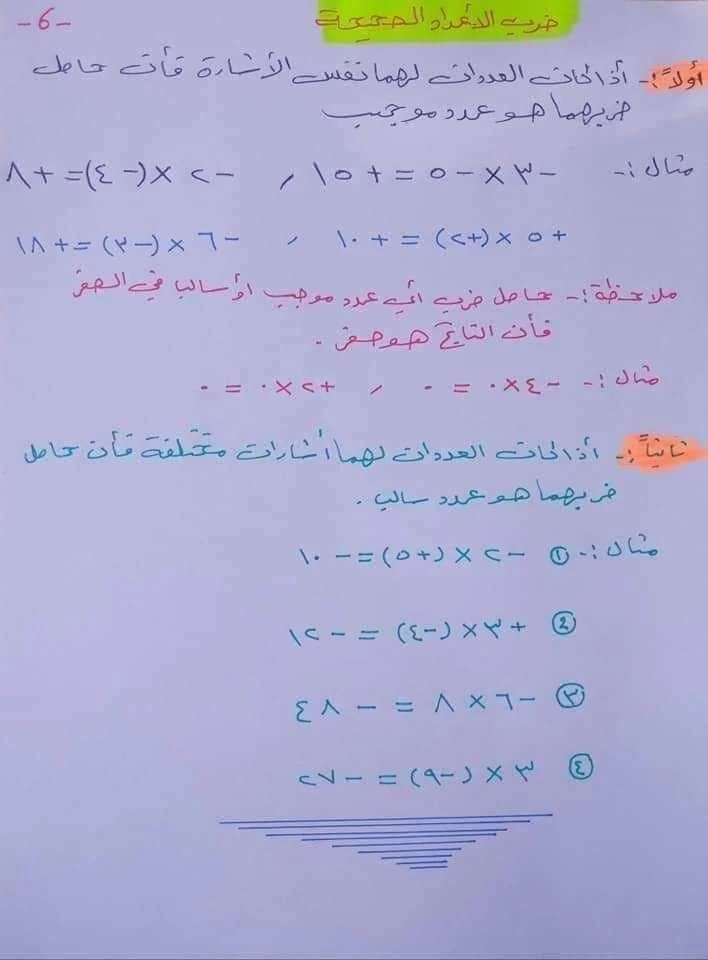 -6-
ضرب الأعداد الصحيحة
أولاً :- أذا كان العددان لهما نفس الأشارة فأن حاصل
ضربهما هو عدد موجب
مثال :- -٣ × -٥ = +١٥ , -٢ × (-٤) = +٨
+٥ × (+٢) = +١٠ , -٦ × (-٣) = +١٨
ملاحظة :- حاصل ضرب أي عدد موجب أو سالب في الصفر
فأن الناتج هو صفر .
مثال :- -٤ × ٠ = ٠ , +٢ × ٠ = ٠
ثانياً :- أذا كان العددان لهما أشارات مختلفة فأن حاصل
ضربهما هو عدد سالب .
مثال :- ① -٢ × (+٥) = -١٠
② +٣ × (-٤) = -١٢
③ -٦ × ٨ = -٤٨
④ ٣ × (-٩) = -٢٧